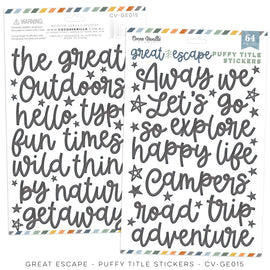 WARNING:
CV-GE015
the great
Outdoors
hello typ
fun times
wild thin
by natur
getaway
Cocoa Vanilla
great escape
PUFFY TITLE
STICKERS
64
Away we
Let's go
so explore
happy life
Campers
road trip
adventure
GREAT ESCAPE - PUFFY TITLE STICKERS - CV-GE015